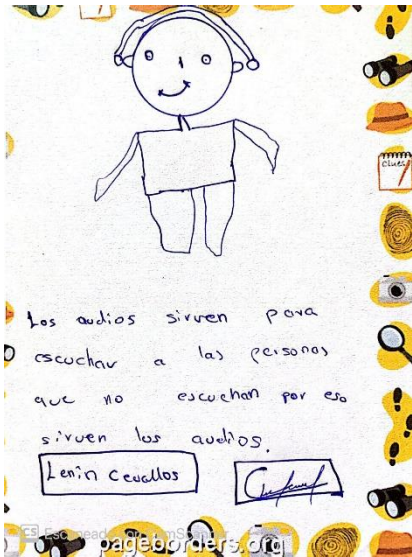 clues
Los audios sirven para
escuchar a las personas
que no escuchan por eso
sirven los audios.
Lenin Cevallos
CS Escaneado con CamScanner
pageborders.org